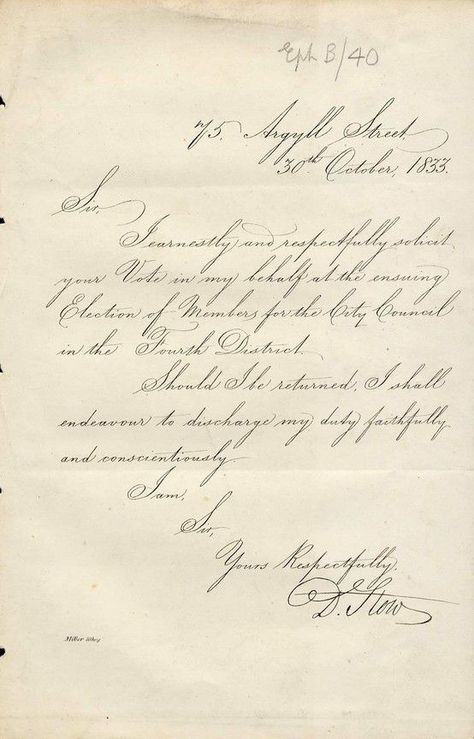 Eph B/40
75. Argyll Street
30th October, 1833.
Sir,
I earnestly and respectfully solicit
your Vote in my behalf at the ensuing
Election of Members for the City Council
in the Fourth District.
Should I be returned, I shall
endeavour to discharge my duty faithfully
and conscientiously.
I am,
Sir,
Yours Respectfully,
D. Stow
Miller lithog